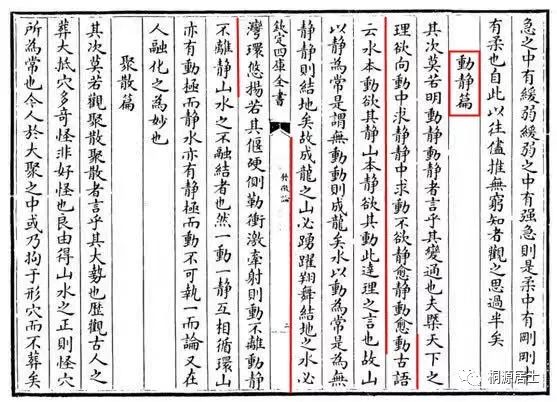 急之中有緩弱緩弱之中有強急則是柔中有剛剛中
有柔也自此以往儘推無窮知者觀之思過半矣
動靜篇
其次莫若明動靜動靜者言乎其變通也夫槩天下之
理欲向動中求靜靜中求動不欲靜愈靜動愈動古語
云水本動欲其靜山本靜欲其動此達理之言也故山
以靜為常是謂無動動則成龍矣水以動為常是為無
靜靜則結地矣故成龍之山必踴躍翔舞結地之水必
欽定四庫全書
發微論
二
灣環悠揚若其偃硬側勒衝激牽射則動不離動靜
不離靜山水之不融結者也然一動一靜互相循環山
亦有動極而靜水亦有靜極而動不可執一而論又在
人融化之為妙也
聚散篇
其次莫若觀聚散聚散者言乎其大勢也歷觀古人之
葬大抵穴多奇怪非好怪也良由得山水之正則怪穴
所為常也今人於大聚之中或乃拘于形穴而不葬矣
桐源居士